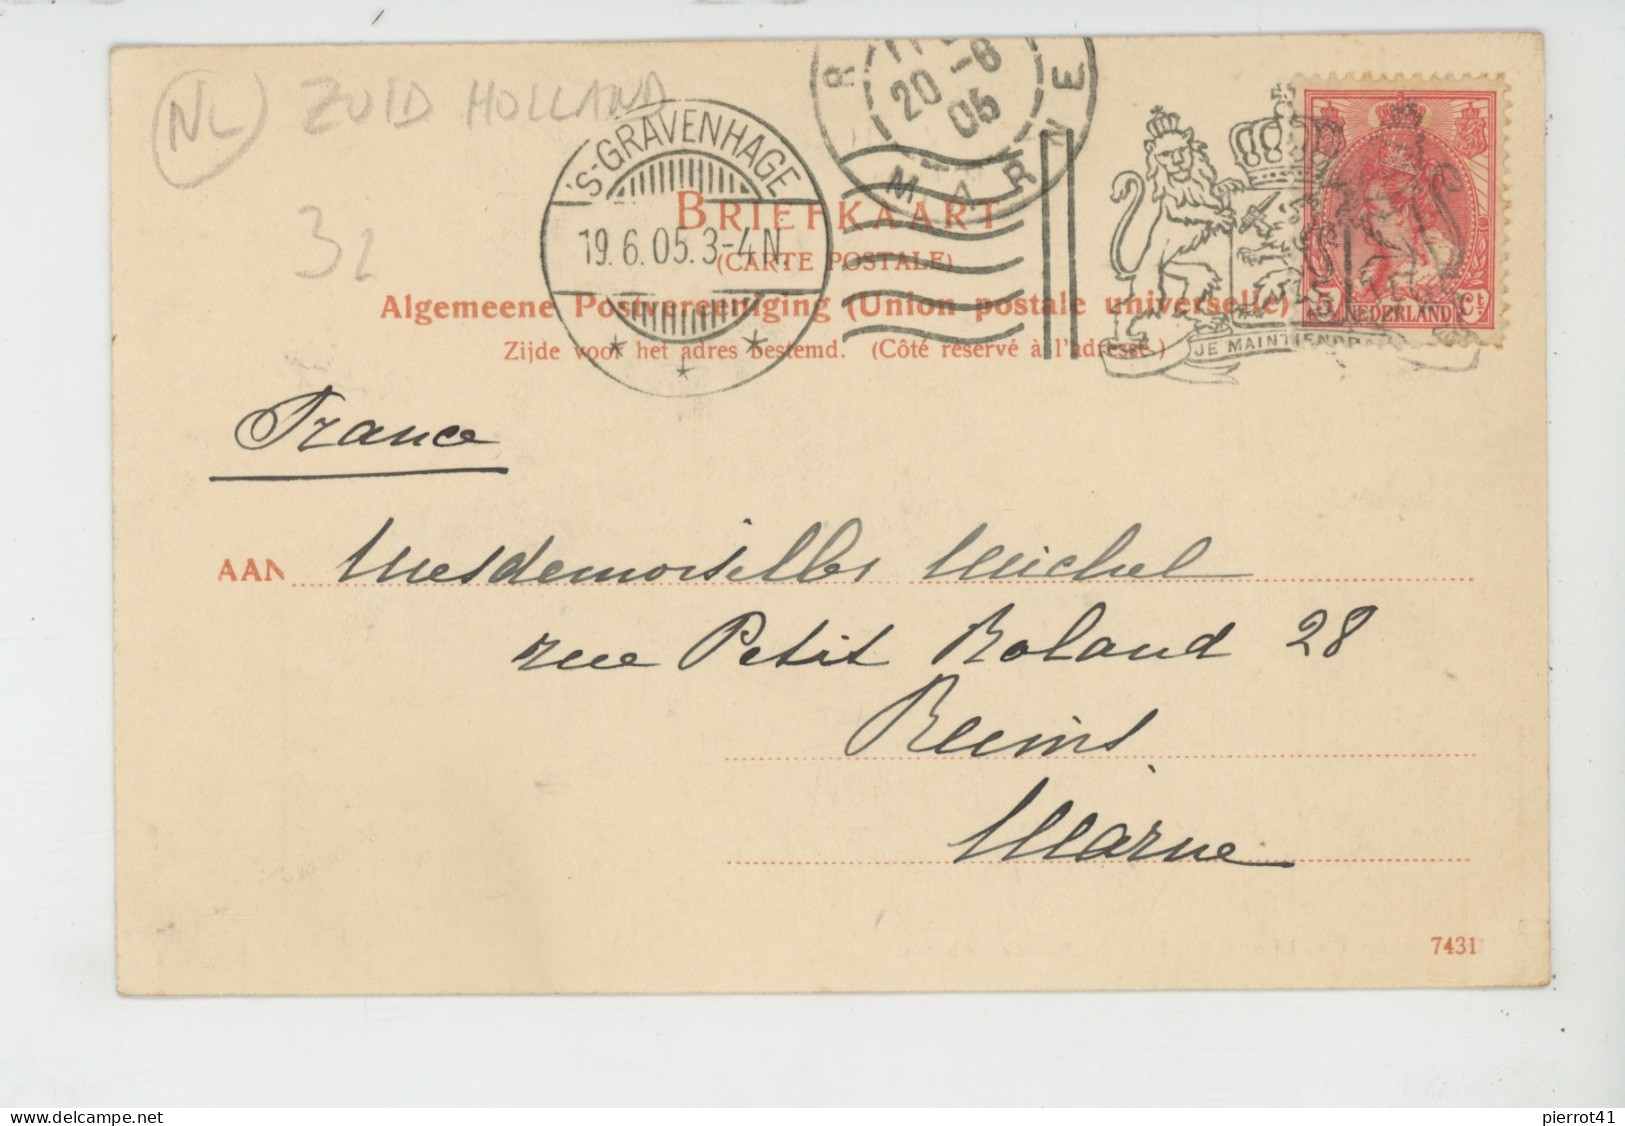 NL ZUID HOLLAND
32
'S-GRAVENHAGE
19.6.05.3-4N.
R
20 -6
05
MARNE
BRIEFKAART
(CARTE POSTALE)
Algemeene Postvereeniging (Union postale universelle)
Zijde voor het adres bestemd. (Côté réservé à l'adresse.)
JE MAINTIENDRAI
5 NEDERLAND Ct
France
AAN Mesdemoiselles Michel
rue Petit Roland 28
Reims
Marne
7431
pierrot41